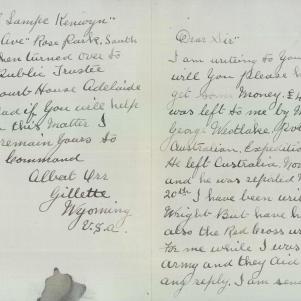 Sampe Kenwyn"
Ave" Rose Park, South
then turned over to
Public Trustee
Court House Adelaide
glad if You will help
in this matter I
remain Yours to
Command
Albert Orr
Gillette
Wyoming
U.S.a.
Dear Sir"
I am writing to You
will You please h
get some Money. £4
was left to me by M
George Westlake,
Australian, Expedition
He left Australia Nov
and he was reported
20th I have been wri
Wright But have h
also the Red Cross wr
for me while I was
army and they did
any reply. I am send